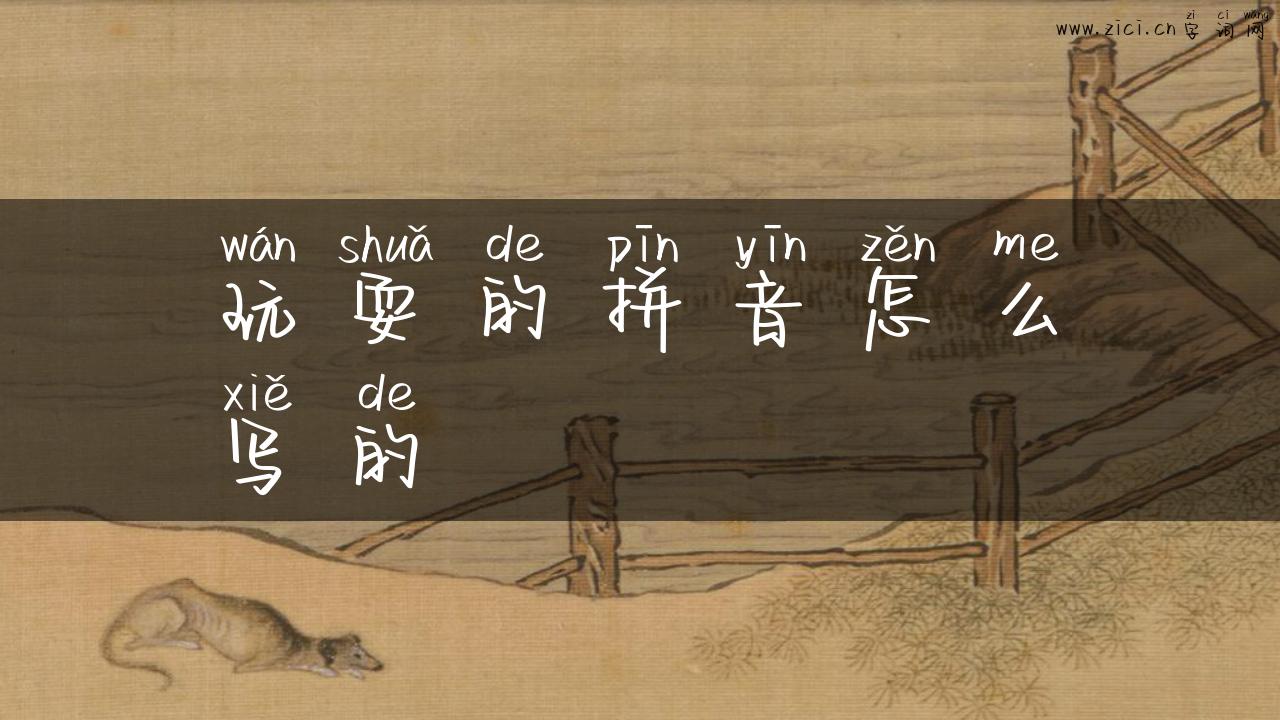 zi ci wang
www.zici.cn 字词网
wán shuǎ de pīn yīn zěn me
玩耍的拼音怎么
xiě de
写的